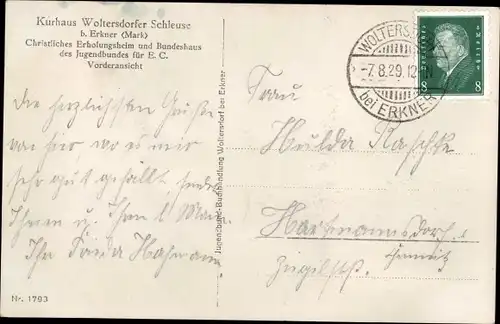 Kurhaus Woltersdorfer Schleuse
b. Erkner (Mark)
Christliches Erholungsheim und Bundeshaus
des Jugendbundes für E. C.
Vorderansicht
Die herzlichsten Grüße
von hier, wo es mir
sehr gut gefällt, sendet
Ihnen u. Ihrem l. Mann
Ihre Frida Hofmann
Nr. 1793
Jugendbund-Buchhandlung Woltersdorf bei Erkner
-7.8.29.12-
bei ERKNER
8 8
Frau
Hulda Raschke
Hartmannsdorf
Chemnitz
Ziegelstr.